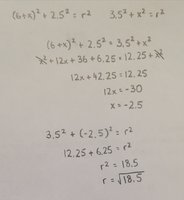 (6+x)² + 2.5² = r² 3.5² + x² = r²
(6+x)² + 2.5² = 3.5² + x²
x² + 12x + 36 + 6.25 = 12.25 + x²
12x + 42.25 = 12.25
12x = -30
x = -2.5
3.5² + (-2.5)² = r²
12.25 + 6.25 = r²
r² = 18.5
r = √18.5